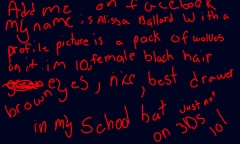 Add me on facebook
My name is Alissa Ballard With a
profile picture is a pack of wolves
on it im 10, female black hair
brown eyes, nice, best drawer
in my School but just not
on 3DS lol